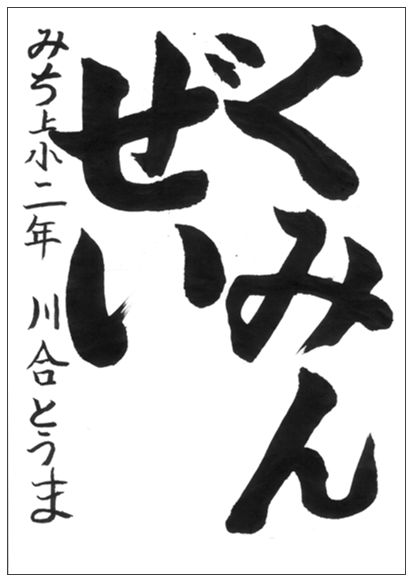 くみん
ぜい
みち上小二年 川合とうま